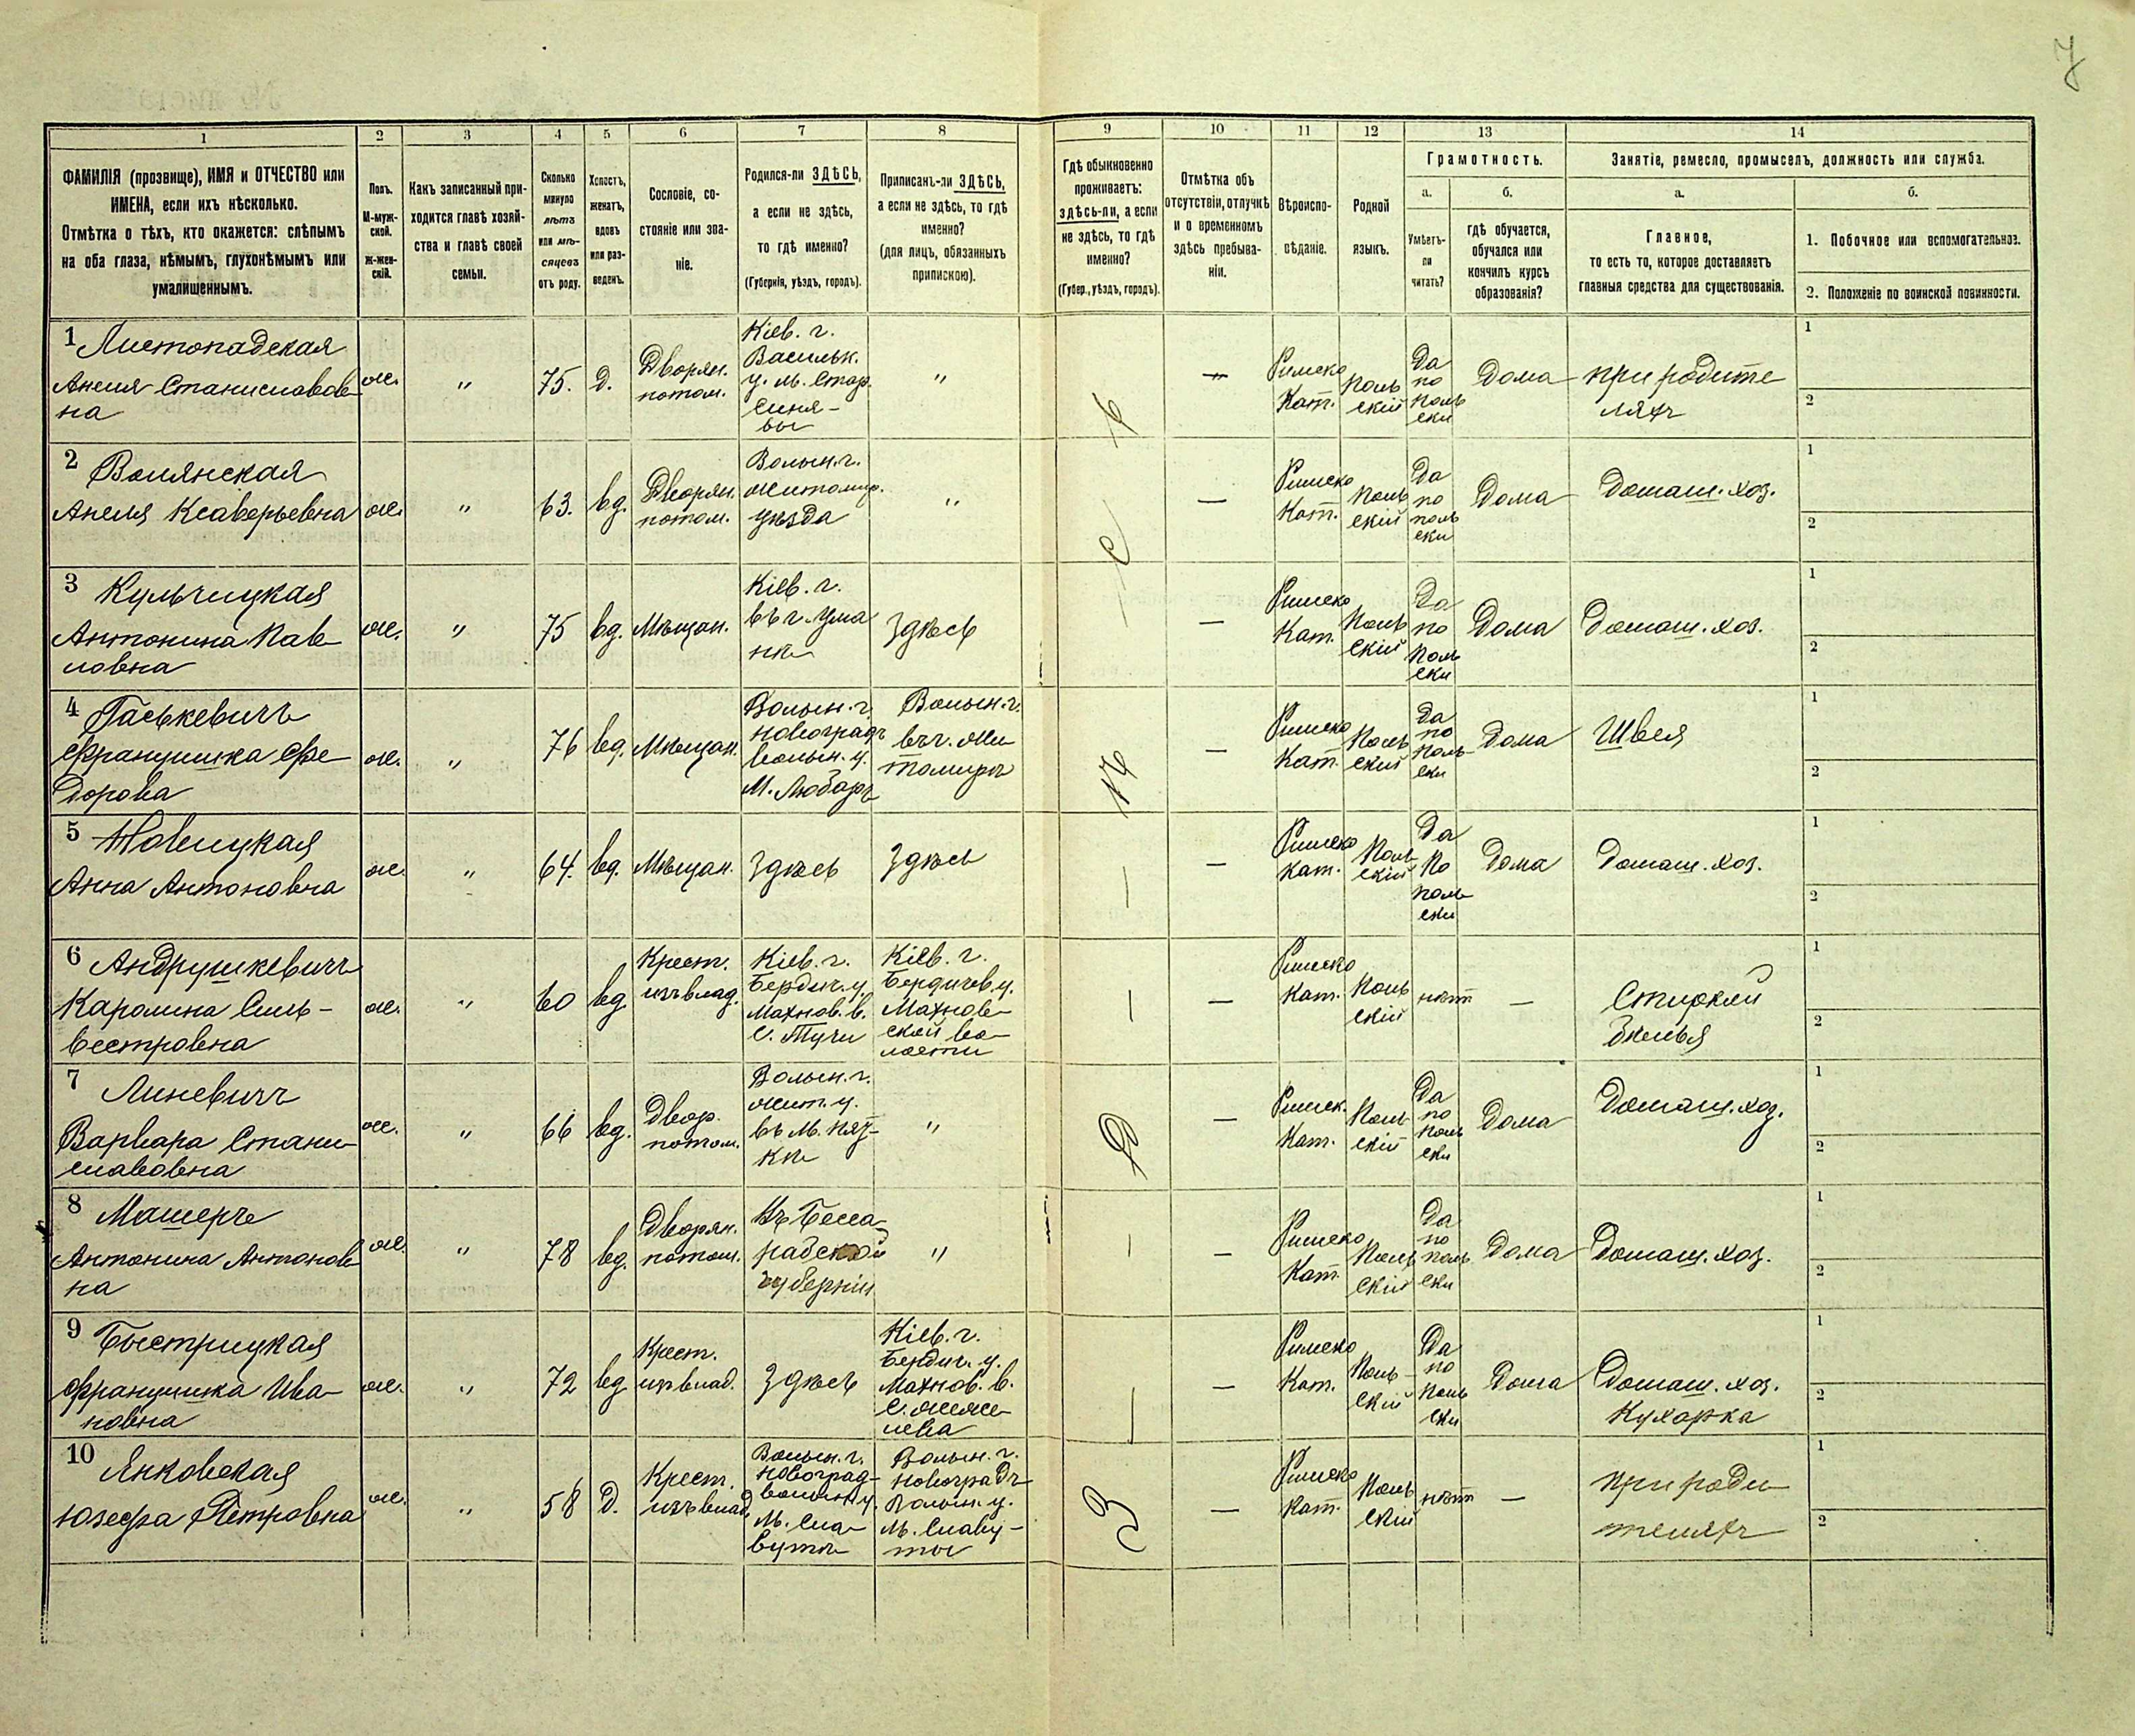 7
1
2
3
4
5
6
7
8
9
10
11
12
13
14
ФАМИЛІЯ (прозвище), ИМЯ и ОТЧЕСТВО или
ИМЕНА, если ихъ нѣсколько.
Отмѣтка о тѣхъ, кто окажется: слѣпымъ
на оба глаза, нѣмымъ, глухонѣмымъ или
умалишеннымъ.
Полъ.
М-муж-
ской.
Ж-жен-
скій.
Какъ записанный при-
ходится главѣ хозяй-
ства и главѣ своей
семьи.
Сколько
минуло
лѣтъ
или мѣ-
сяцевъ
отъ роду.
Холостъ,
женатъ,
вдовъ
или раз-
веденъ.
Сословіе, со-
стояніе или зва-
ніе.
Родился-ли ЗДѢСЬ,
а если не здѣсь,
то гдѣ именно?
(Губернія, уѣздъ, городъ).
Приписанъ-ли ЗДѢСЬ,
а если не здѣсь, то гдѣ
именно?
(для лицъ, обязанныхъ
припискою).
Гдѣ обыкновенно
проживаетъ:
здѣсь-ли, а если
не здѣсь, то гдѣ
именно?
(Губер., уѣздъ, городъ).
Отмѣтка объ
отсутствіи, отлучкѣ
и о временномъ
здѣсь пребыва-
ніи.
Вѣроиспо-
вѣданіе.
Родной
языкъ.
Грамотность.
а.
б.
Умѣетъ-
ли
читать?
гдѣ обучается,
обучался или
кончилъ курсъ
образованія?
Занятіе, ремесло, промыселъ, должность или служба.
а.
б.
Главное,
то есть то, которое доставляетъ
главныя средства для существованія.
1. Побочное или вспомогательное.
2. Положеніе по воинской повинности.
1 Листопадская
Анеля Станиславов-
на
ж.
"
75.
д.
Дворян.
потом.
Кіев. г.
Васильк.
у. м. Стар.
Синя-
вы
"
—
Римско
Кат.
Поль
скій
Да
по
поль
ски
Дома
при родите
ляхъ
1
2
2 Волянская
Анеля Ксаверьевна
ж.
"
63.
вд.
Дворян.
потом.
Волын. г.
житомир.
уѣзда
"
—
Римско
Кат.
Поль
скій
Да
по
поль
ски
Дома
Домаш. хоз.
1
2
3 Кульчицкая
Антонина Пав-
ловна
ж.
"
75
вд.
Мѣщан.
Кіев. г.
въ г. Ума
нѣ
Здѣсь
—
Римско
Кат.
Поль
скій
Да
по
Поль
ски
Дома
Домаш. хоз.
1
2
4 Гаськевичъ
Францишка Фе-
дорова
ж.
"
76
вд.
Мѣщан.
Волын. г.
новоградъ
волын. у.
м. Любаръ
Волын. г.
въ г. Жи
томирѣ
—
Римско
Кат.
Поль
скій
Да
по
поль
ски
Дома
Швея
1
2
5 Новицкая
Анна Антоновна
ж.
"
64.
вд.
Мѣщан.
Здѣсь
Здѣсь
—
Римско
кат.
Поль
скій
Да
По
поль
ски
Дома
Домаш. хоз.
1
2
6 Андрушкевичъ
Каролина Силь-
вестровна
ж.
"
60
вд.
Крест.
изъ влад.
Кіев. г.
Бердич. у.
Махнов. в.
С. Тучи
Кіев. г.
Бердичев. у.
Махнов-
ской во-
лости
—
Римско
Кат.
Поль
скій
нѣт
—
Стиркой
бѣлья
1
2
7 Линевичъ
Варвара Стани-
славовна
ж.
"
66
вд.
Двор.
потом.
Волын. г.
жит. у.
въ м. Пят-
кѣ
"
—
Римск.
Кат.
Поль
скій
Да
по
поль
ски
Дома
Домаш. хоз.
1
2
8 Машерче
Антонина Антонов-
на
ж.
"
78
вд.
Дворян.
потом.
Въ Бесса-
рабской
губерніи
"
—
Римско
Кат.
Поль
скій
Да
по
поль
ски
Дома
Домаш. хоз.
1
2
9 Быстрицкая
Францишка Ива-
новна
ж.
"
72
вд.
Крест.
изъ влад.
Здѣсь
Кіев. г.
Бердич. у.
Махнов. в.
С. Жеже-
лева
—
Римско
Кат.
Поль
скій
Да
по
Поль
ски
Дома
Домаш. хоз.
Кухарка
1
2
10 Янковская
Юзефа Петровна
ж.
"
58
д.
Крест.
изъ влад.
Волын. г.
Новоград-
волын. у.
м. Сла-
вута
Волын. г.
Новоградъ
Волын. у.
м. Славу-
ты
—
Римско
кат.
Поль
скій
нѣт
—
при роди-
теляхъ
1
2